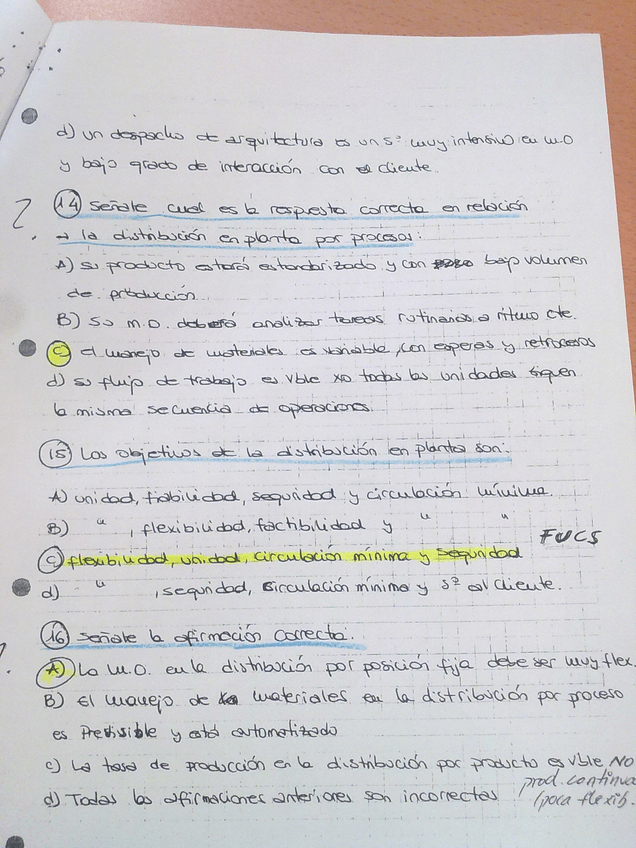 d) un despacho de arquitectura es un sº muy intensivo en M.O
y bajo grado de interacción con el cliente.
? 14 Señale cual es la respuesta correcta en relación
a la distribución en planta por procesos:
A) su producto estará estandarizado y con bajo volumen
de producción.
B) Su M.O. deberá analizar tareas rutinarias a ritmo cte.
C) el manejo de materiales es variable, con esperas y retrocesos
d) su flujo de trabajo es vble xo todas las unidades siguen
la misma secuencia de operaciones.
15 Los objetivos de la distribución en planta son:
A) unidad, fiabilidad, seguridad y circulación mínima.
B) " , flexibilidad, factibilidad y " "
FUCS
C) flexibilidad, unidad, circulación mínima y seguridad
d) " , seguridad, circulación mínima y sº al cliente.
16 Señale la afirmación correcta:
? A) La M.O. en la distribución por posición fija debe ser muy flex.
B) El manejo de materiales en la distribución por proceso
es Previsible y está automatizado
c) La tasa de producción en la distribución por producto es vble NO
prod. continua
d) Todas las afirmaciones anteriores son incorrectas
(poca flexib.